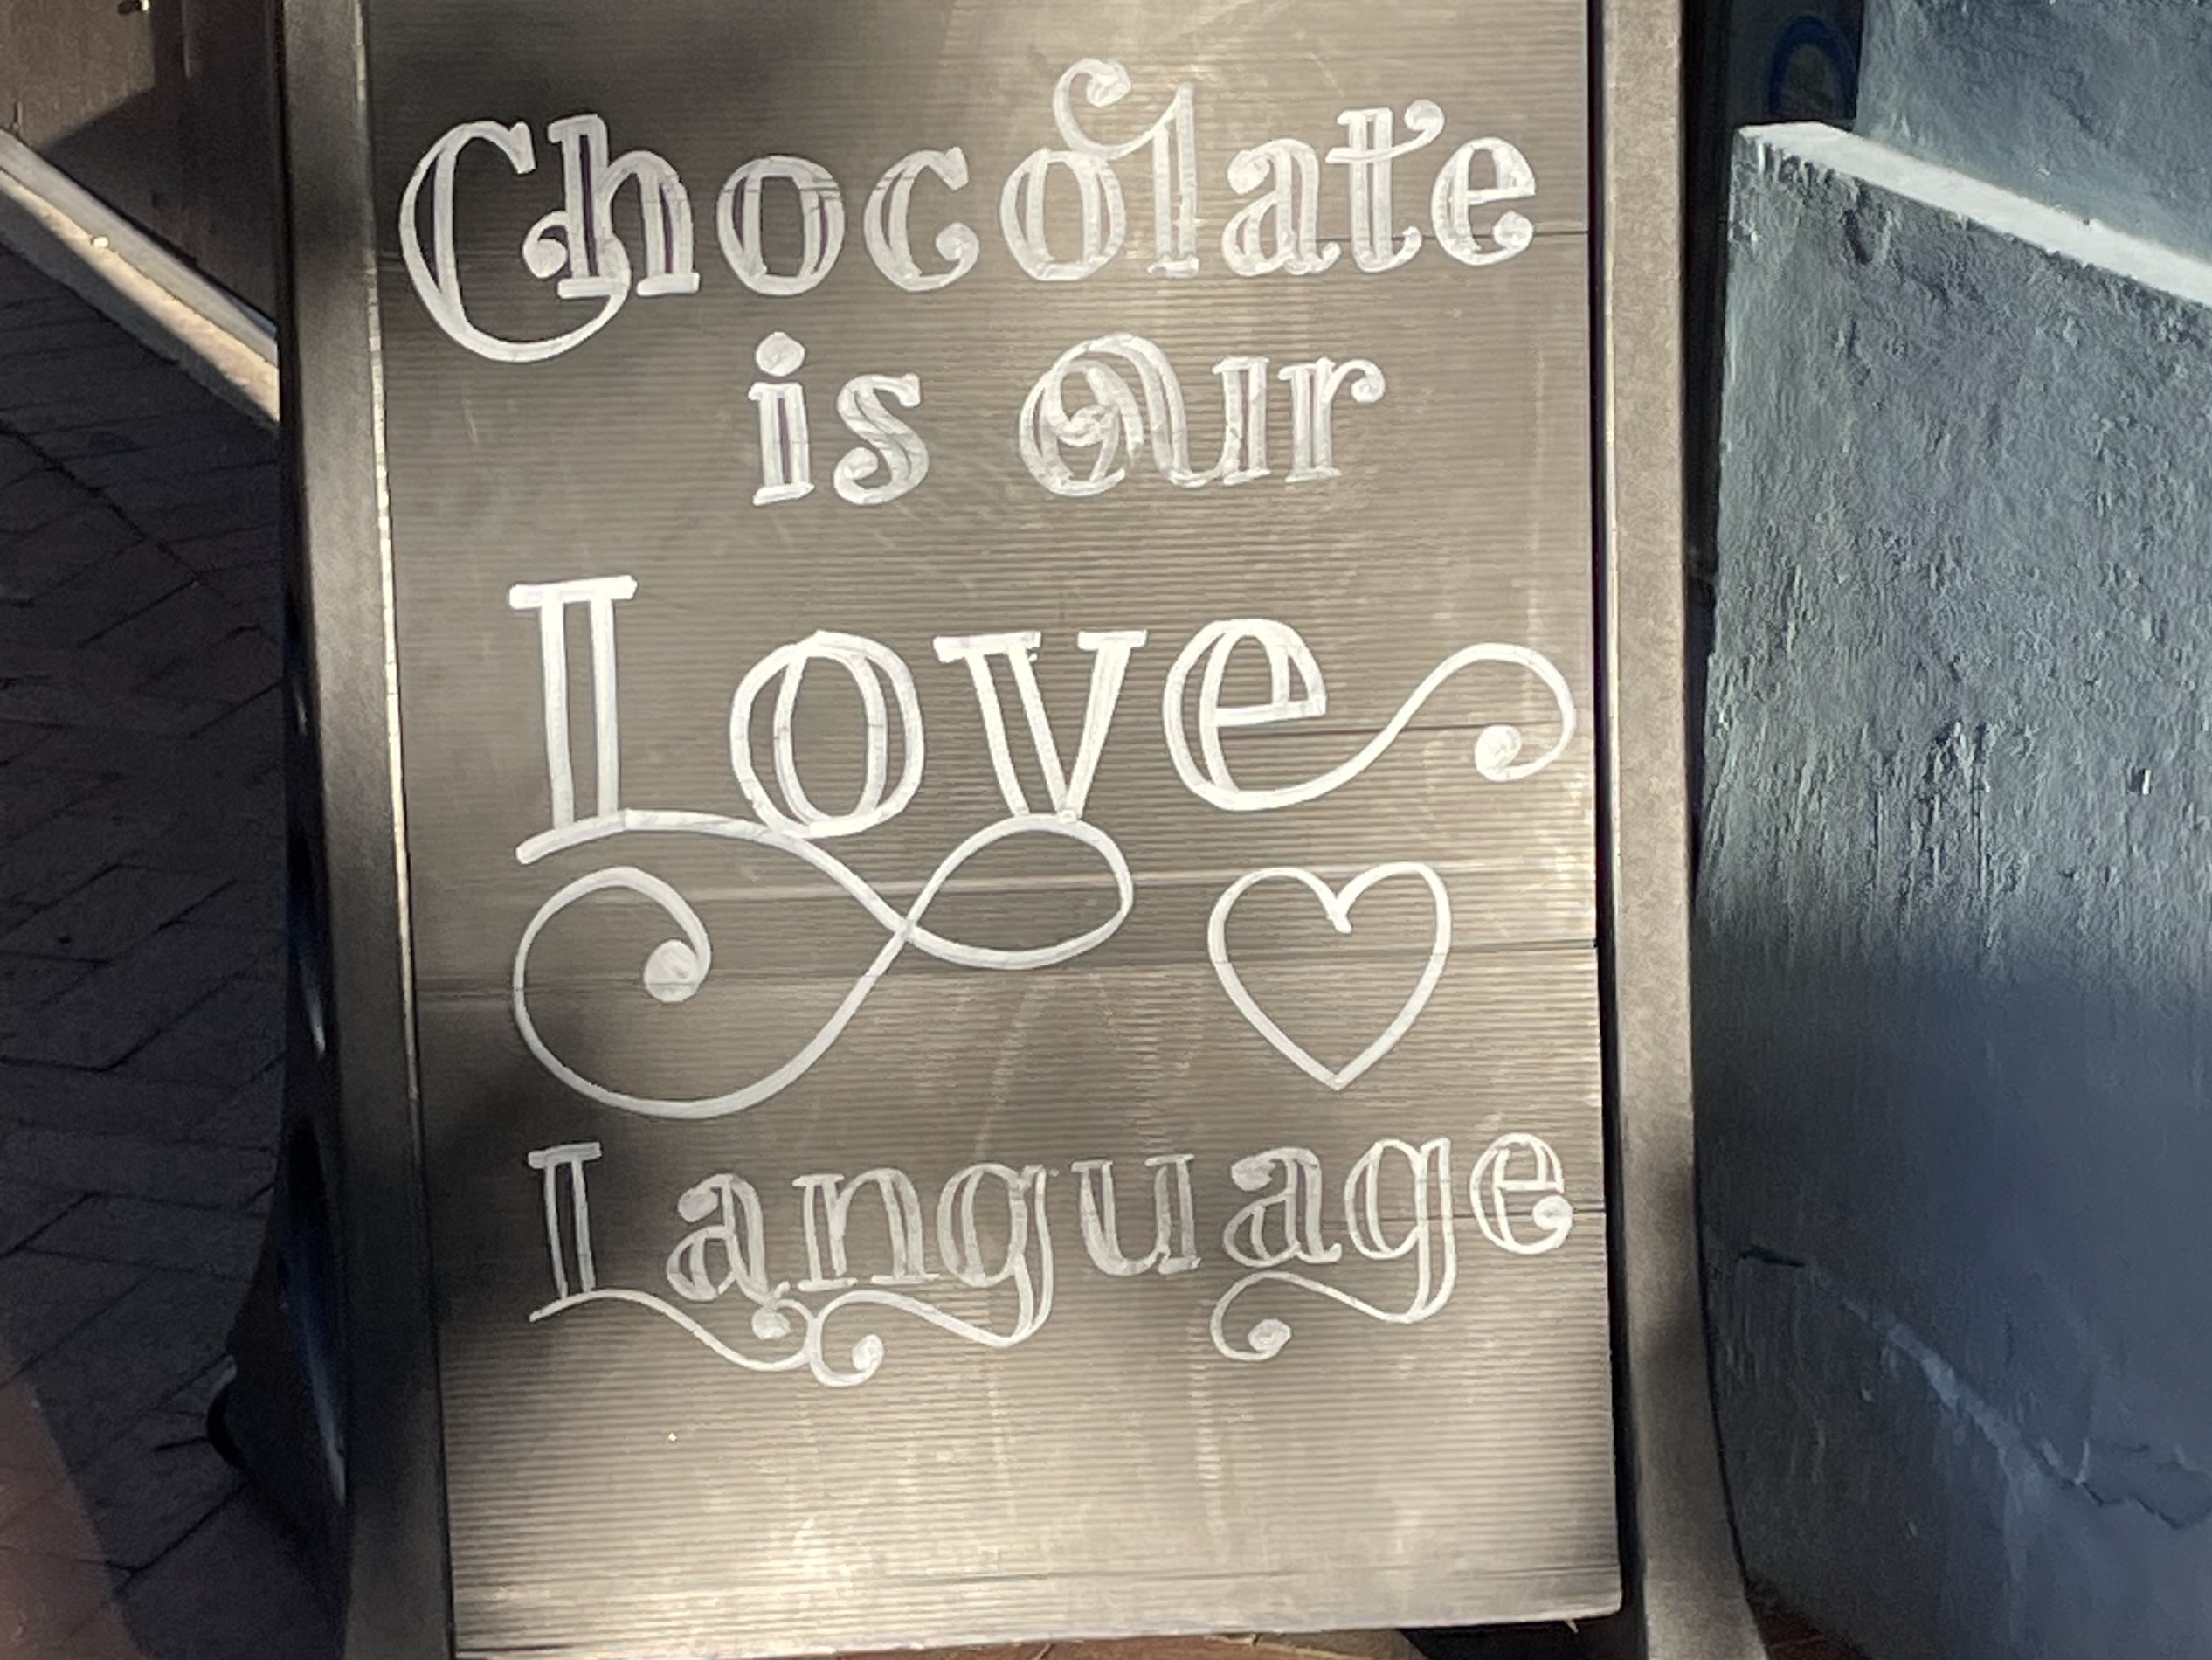 Chocolate
is our
Love
Language